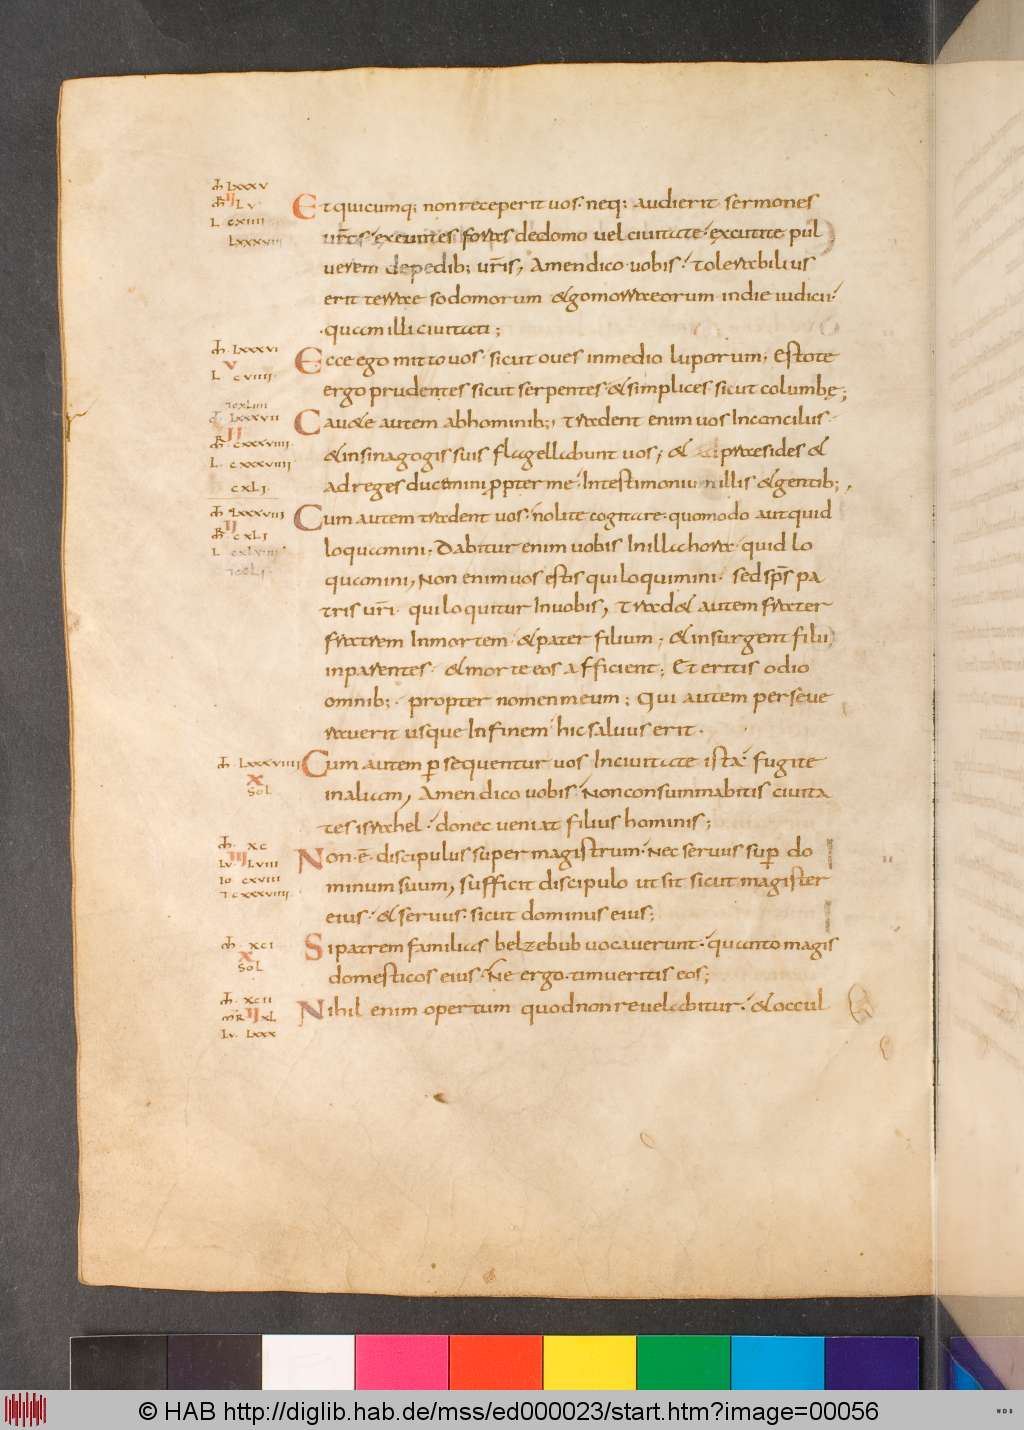 Mͭ LXXXV
MR II LV
L CXIIII
LXXXVIII
Et quicumq; non receperit uos. neq; audierit sermones
ur̅os exeuntes foras de domo uel ciuitate. excutite pul
uerem de pedib; ur̅is, Amen dico uobis. Tolerabilius
erit terrae sodomorum & gomorraeorum in die iudicii.
quam illi ciuitati;
Mͭ LXXXVI
V
L CVIIII
Ecce ego mitto uos. sicut oues in medio luporum; Estote
ergo prudentes sicut serpentes. & simplices sicut columbę;
LXXXVII
II
CXXXVIIII
L CXXXVIIII
CXLI
Cau&e autem ab hominib;, Tradent enim uos In conciliis.
& in sinagogis suis flagellabunt uos, & ad praesides &
ad reges ducemini ꝓpter me. In testimoniu illis & gentib;,
Mͭ LXXXVIII
II
MR CXLI
L CXLVIII
Cum autem tradent uos. nolite cogitare. quomodo aut quid
loquamini; Dabitur enim uobis In illa hora. quid lo
quamini, Non enim uos estis qui loquimini. sed sp̅s pa
tris ur̅i. qui loquitur In uobis, Trad& autem frater
fratrem In mortem. & pater filium; & insurgent filii
in parentes. & morte eos afficient; Et eritis odio
omnib;. propter nomen meum; Qui autem perseue
rauerit usque In finem hic saluus erit.
Mͭ LXXXVIIII
X
SOL
Cum autem ꝑsequentur uos In ciuitate ista. fugite
in aliam, Amen dico uobis. Non consummabitis ciuita
tes israhel. donec ueniat filius hominis;
Mͭ XC
III
LV. LVIII
IO CXVIII
⁊ CXXXVIIII
Non ē. discipulus super magistrum. Nec seruus suꝑ do
minum suum, sufficit discipulo ut sit sicut magister
eius. & seruus. sicut dominus eius;
Mͭ XCI
X
SOL
Si patrem familias belzebub uocauerunt. quanto magis
domesticos eius. Ne ergo. timueritis eos;
Mͭ XCII
MR II XL
LV. LXXX
Nihil enim opertum quod non reuelabitur. & occul
© HAB http://diglib.hab.de/mss/ed000023/start.htm?image=00056